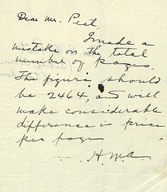 Dear Mr. Peet
I made a
mistake on the total
number of pages.
The figure should
be 2464, as well
make considerable
difference in price
per page